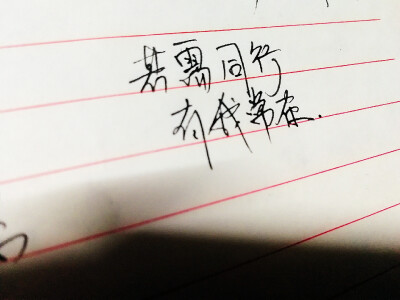 若需同行
有我常在.